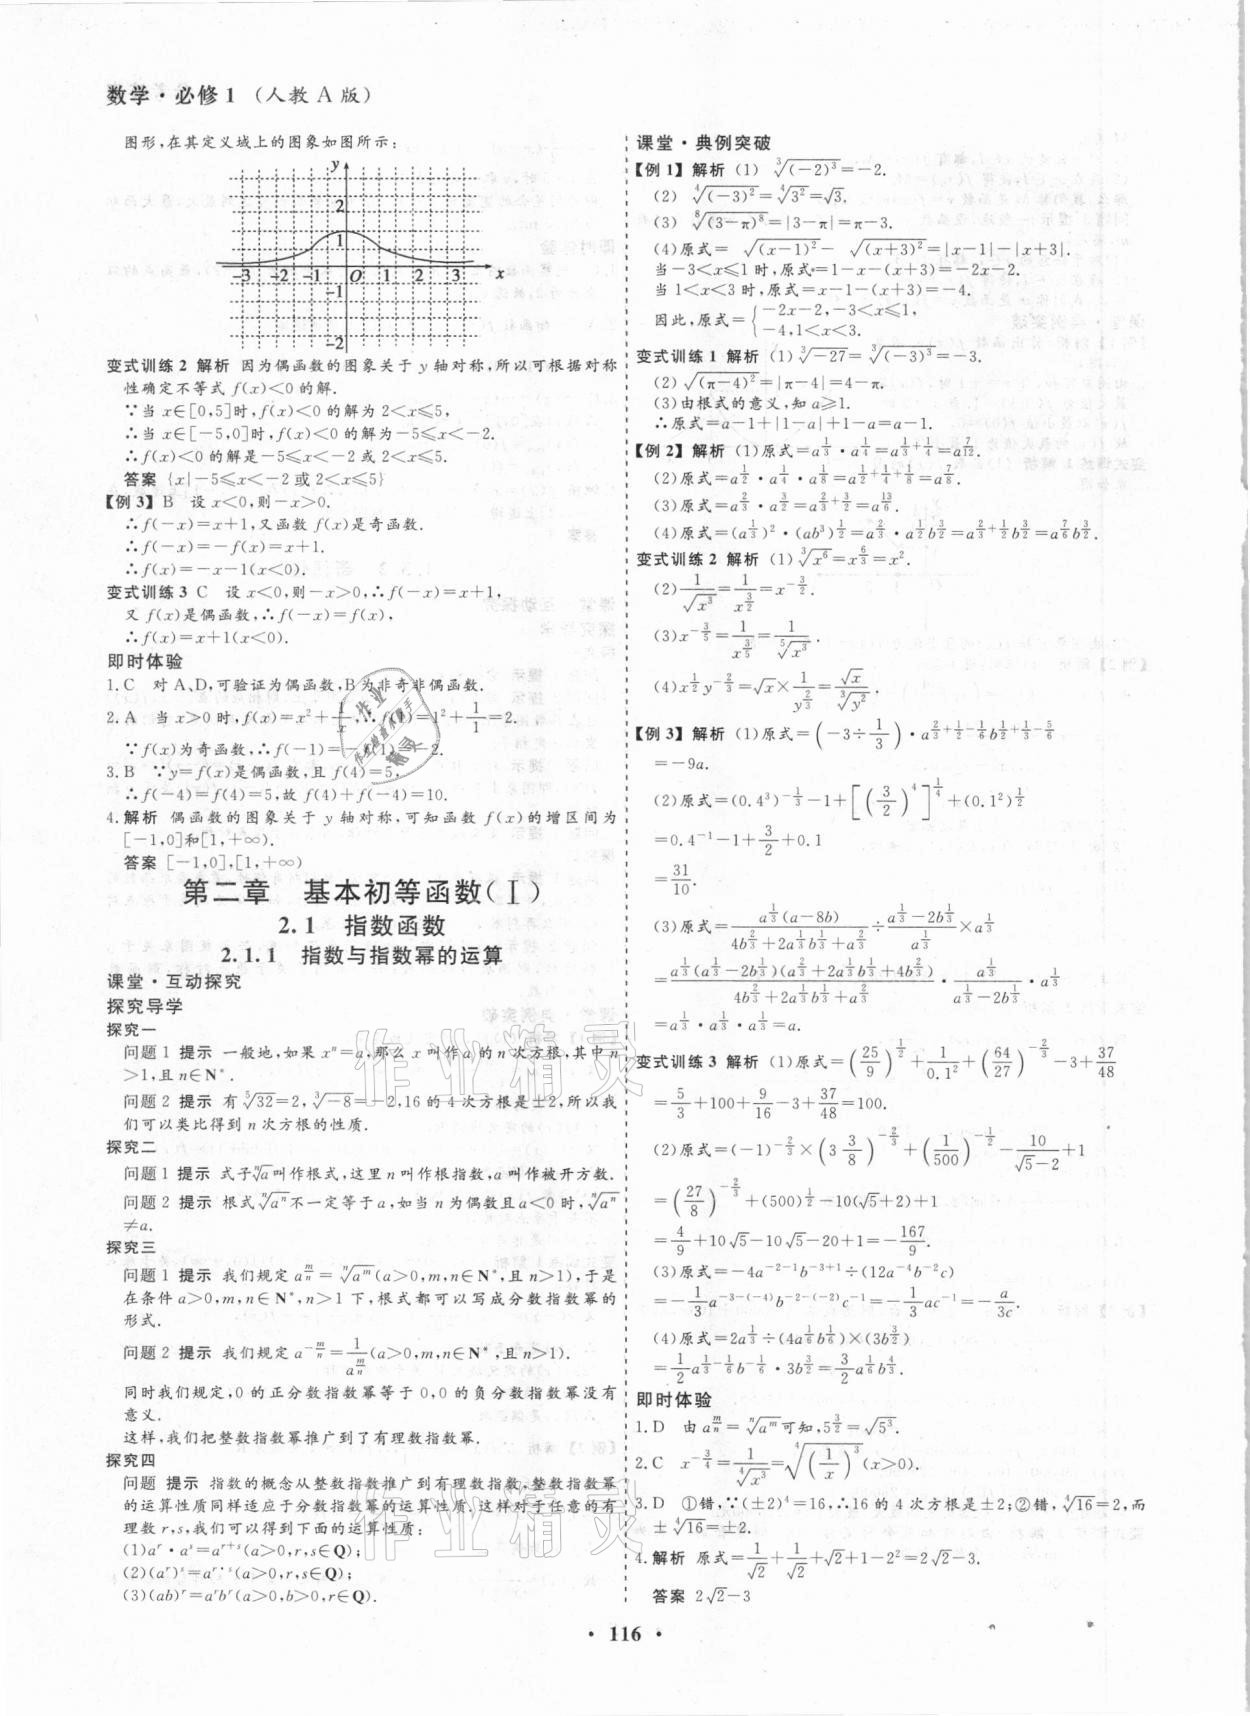 数学·必修1（人教A版）
图形,在其定义域上的图象如图所示:
y
2
1
-3 -2 -1 O 1 2 3 x
-1
-2
变式训练2 解析 因为偶函数的图象关于y轴对称,所以可根据对称
性确定不等式f(x)<0的解.
∵当x∈[0,5]时,f(x)<0的解为2<x≤5,
∴当x∈[-5,0]时,f(x)<0的解为-5≤x<-2.
∴f(x)<0的解是-5≤x<-2或2<x≤5.
答案 {x|-5≤x<-2或2<x≤5}
【例3】B 设x<0,则-x>0.
∴f(-x)=x+1,又函数f(x)是奇函数.
∴f(-x)=-f(x)=x+1.
∴f(x)=-x-1(x<0).
变式训练3 C 设x<0,则-x>0,∴f(-x)=x+1,
又f(x)是偶函数,∴f(-x)=f(x),
∴f(x)=x+1(x<0).
即时体验
1.C 对A、D,可验证为偶函数,B为非奇非偶函数.
2.A 当x>0时,f(x)=x²+1/x,∴f(1)=1²+1/1=2.
∵f(x)为奇函数,∴f(-1)=-f(1)=-2.
3.B ∵y=f(x)是偶函数,且f(4)=5,
∴f(-4)=f(4)=5,故f(4)+f(-4)=10.
4.解析 偶函数的图象关于y轴对称,可知函数f(x)的增区间为
[-1,0]和[1,+∞).
答案 [-1,0],[1,+∞)
第二章 基本初等函数(Ⅰ)
2.1 指数函数
2.1.1 指数与指数幂的运算
课堂·互动探究
探究导学
探究一
问题1 提示 一般地,如果xⁿ=a,那么x叫作a的n次方根,其中n
>1,且n∈N*.
问题2 提示 有⁵√32=2,³√-8=-2,16的4次方根是±2,所以我
们可以类比得到n次方根的性质.
探究二
问题1 提示 式子ⁿ√a叫作根式,这里n叫作根指数,a叫作被开方数.
问题2 提示 根式ⁿ√(aⁿ)不一定等于a,如当n为偶数且a<0时,ⁿ√(aⁿ)
≠a.
探究三
问题1 提示 我们规定a^(m/n)=ⁿ√(a^m)(a>0,m,n∈N*,且n>1),于是
在条件a>0,m,n∈N*,n>1下,根式都可以写成分数指数幂的
形式.
问题2 提示 我们规定a^(-m/n)=1/a^(m/n)(a>0,m,n∈N*,且n>1).
同时我们规定,0的正分数指数幂等于0,0的负分数指数幂没有
意义.
这样,我们把整数指数幂推广到了有理数指数幂.
探究四
问题 提示 指数的概念从整数指数推广到有理数指数,整数指数幂
的运算性质同样适应于分数指数幂的运算性质.这样对于任意的有
理数r,s,我们可以得到下面的运算性质:
(1)a^r·a^s=a^(r+s)(a>0,r,s∈Q);
(2)(a^r)^s=a^(r·s)(a>0,r,s∈Q);
(3)(ab)^r=a^r b^r(a>0,b>0,r∈Q).
课堂·典例突破
【例1】解析 (1) ³√((-2)³)=-2.
(2) ⁴√((-3)²)=⁴√(3²)=√3.
(3) ⁸√((3-π)⁸)=|3-π|=π-3.
(4)原式= √((x-1)²)- √((x+3)²)=|x-1|-|x+3|.
当-3<x≤1时,原式=1-x-(x+3)=-2x-2.
当1<x<3时,原式=x-1-(x+3)=-4.
因此,原式={-2x-2,-3<x≤1,
-4,1<x<3.
变式训练1 解析 (1)³√-27=³√((-3)³)=-3.
(2)√((π-4)²)=|π-4|=4-π.
(3)由根式的意义,知a≥1.
∴原式=a-1+|1-a|+1-a=a-1.
【例2】解析 (1)原式=a^(1/3)·a^(1/4)=a^(1/3+1/4)=a^(7/12).
(2)原式=a^(1/2)·a^(1/4)·a^(1/8)=a^(1/2+1/4+1/8)=a^(7/8).
(3)原式=a^(2/3)·a^(3/2)=a^(2/3+3/2)=a^(13/6).
(4)原式=(a^(1/3))²·(ab³)^(1/2)=a^(2/3)·a^(1/2)b^(3/2)=a^(2/3+1/2)b^(3/2)=a^(7/6)b^(3/2).
变式训练2 解析 (1)³√(x⁶)=x^(6/3)=x².
(2)1/√(x³)=1/x^(3/2)=x^(-3/2).
(3)x^(-3/5)=1/x^(3/5)=1/⁵√(x³).
(4)x^(1/2)y^(-2/3)=√x×1/y^(2/3)=√x/³√(y²).
【例3】解析 (1)原式=(-3÷1/3)·a^(2/3+1/2-1/6)b^(1/2+1/3-5/6)
=-9a.
(2)原式=(0.4³)^(-1/3)-1+[(3/2)⁴]^(1/4)+(0.1²)^(1/2)
=0.4⁻¹-1+3/2+0.1
=31/10.
(3)原式=a^(1/3)(a-8b)/(4b^(2/3)+2a^(1/3)b^(1/3)+a^(2/3))÷(a^(1/3)-2b^(1/3))/a^(1/3)×a^(1/3)
=a^(1/3)(a^(1/3)-2b^(1/3))(a^(2/3)+2a^(1/3)b^(1/3)+4b^(2/3))/(4b^(2/3)+2a^(1/3)b^(1/3)+a^(2/3))·a^(1/3)/(a^(1/3)-2b^(1/3))·a^(1/3)
=a^(1/3)·a^(1/3)·a^(1/3)=a.
变式训练3 解析 (1)原式=(25/9)^(1/2)+1/0.1²+(64/27)^(-2/3)-3+37/48
=5/3+100+9/16-3+37/48=100.
(2)原式=(-1)^(-2/3)×(3 3/8)^(-2/3)+(1/500)^(-1/2)-10/(√5-2)+1
=(27/8)^(-2/3)+(500)^(1/2)-10(√5+2)+1
=4/9+10√5-10√5-20+1=-167/9.
(3)原式=-4a^(-2-1)b^(-3+1)÷(12a⁻⁴b⁻²c)
=-1/3a^(-3-(-4))b^(-2-(-2))c⁻¹=-1/3ac⁻¹=-a/3c.
(4)原式=2a^(1/3)÷(4a^(1/6)b^(1/6))×(3b^(3/2))
=1/2a^(1/3-1/6)b^(-1/6)·3b^(3/2)=3/2a^(1/6)b^(4/3).
即时体验
1.D 由a^(m/n)=ⁿ√(a^m)可知,5^(3/2)=√(5³).
2.C x^(-3/4)=1/⁴√(x³)=⁴√((1/x)³)(x>0).
3.D ①错,∵(±2)⁴=16,∴16的4次方根是±2;②错,⁴√16=2,而
±⁴√16=±2.
4.解析 原式=1/√2+1/√2+√2+1-2²=2√2-3.
答案 2√2-3
·116·
作业精灵
作业精灵